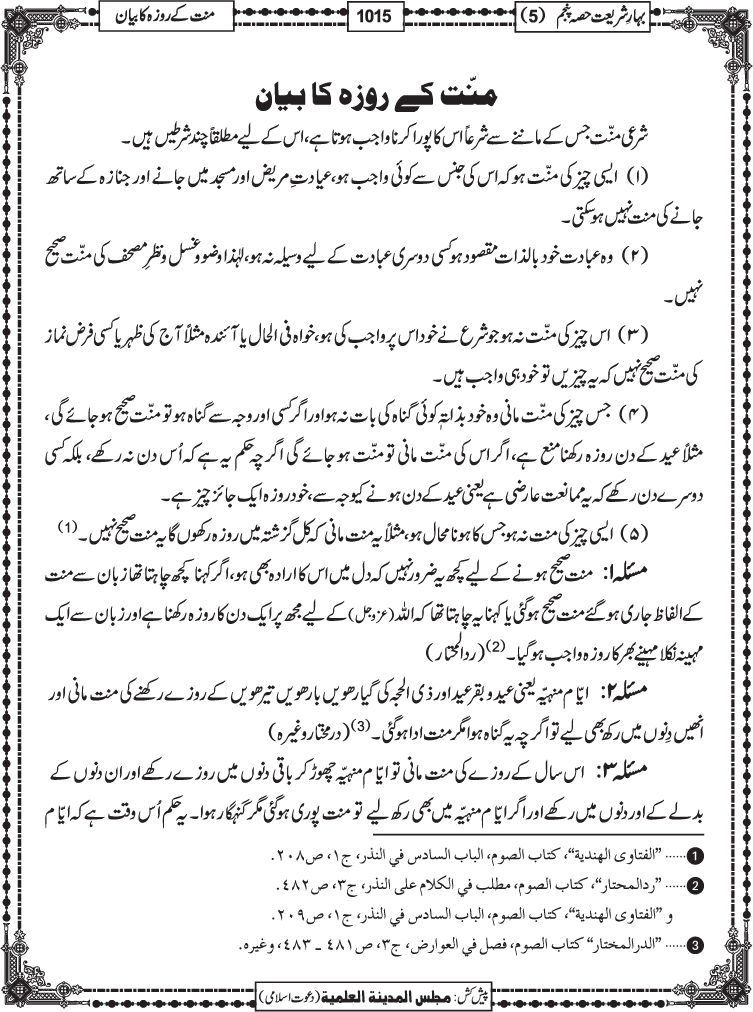 بہارِ شریعت حصہ پنجم (5)
1015
منت کے روزہ کا بیان
منّت کے روزہ کا بیان
شرعی منّت جس کے ماننے سے شرعاً اس کا پورا کرنا واجب ہوتا ہے، اس کے لیے مطلقاً چند شرطیں ہیں۔
(۱) ایسی چیز کی منّت ہو کہ اس کی جنس سے کوئی واجب ہو، عیادتِ مریض اور مسجد میں جانے اور جنازہ کے ساتھ
جانے کی منت نہیں ہو سکتی۔
(۲) وہ عبادت خود بالذات مقصود ہو کسی دوسری عبادت کے لیے وسیلہ نہ ہو، لہٰذا وضو و غسل و نظرِ مصحف کی منّت صحیح
نہیں۔
(۳) اس چیز کی منّت نہ ہو جو شرع نے خود اس پر واجب کی ہو، خواہ فی الحال یا آئندہ مثلاً آج کی ظہر یا کسی فرض نماز
کی منّت صحیح نہیں کہ یہ چیزیں تو خود ہی واجب ہیں۔
(۴) جس چیز کی منّت مانی وہ خود بذاتہٖ کوئی گناہ کی بات نہ ہو اور اگر کسی اور وجہ سے گناہ ہو تو منّت صحیح ہو جائے گی،
مثلاً عید کے دن روزہ رکھنا منع ہے، اگر اس کی منّت مانی تو منّت ہو جائے گی اگرچہ حکم یہ ہے کہ اُس دن نہ رکھے، بلکہ کسی
دوسرے دن رکھے کہ یہ ممانعت عارضی ہے یعنی عید کے دن ہونے کیوجہ سے، خود روزہ ایک جائز چیز ہے۔
(۵) ایسی چیز کی منت نہ ہو جس کا ہونا محال ہو، مثلاً یہ منت مانی کہ کل گزشتہ میں روزہ رکھوں گا یہ منت صحیح نہیں۔ (1)
مسئلہ ۱: منت صحیح ہونے کے لیے کچھ یہ ضرور نہیں کہ دل میں اس کا ارادہ بھی ہو، اگر کہنا کچھ چاہتا تھا زبان سے منت
کے الفاظ جاری ہو گئے منت صحیح ہو گئی یا کہنا یہ چاہتا تھا کہ اللہ (عزوجل) کے لیے مجھ پر ایک دن کا روزہ رکھنا ہے اور زبان سے ایک
مہینہ نکلا مہینے بھر کا روزہ واجب ہو گیا۔ (2) (ردالمحتار)
مسئلہ ۲: ایّام منہیّہ یعنی عید و بقرعید اور ذی الحجہ کی گیارھویں بارھویں تیرھویں کے روزے رکھنے کی منت مانی اور
انھیں دِنوں میں رکھ بھی لیے تو اگرچہ یہ گناہ ہوا مگر منت ادا ہو گئی۔ (3) (درمختار وغیرہ)
مسئلہ ۳: اس سال کے روزے کی منت مانی تو ایّام منہیّہ چھوڑ کر باقی دنوں میں روزے رکھے اور ان دنوں کے
بدلے کے اور دنوں میں رکھے اور اگر ایّام منہیّہ میں بھی رکھ لیے تو منت پوری ہو گئی مگر گنہگار ہوا۔ یہ حکم اُس وقت ہے کہ ایّام
1 ...... "الفتاوى الهندية"، كتاب الصوم، الباب السادس في النذر، ج١، ص٢٠٨.
2 ...... "ردالمحتار"، كتاب الصوم، مطلب في الكلام على النذر، ج٣، ص٤٨٢.
و "الفتاوى الهندية"، كتاب الصوم، الباب السادس في النذر، ج١، ص٢٠٩.
3 ...... "الدرالمختار" كتاب الصوم، فصل في العوارض، ج٣، ص٤٨١ ـ ٤٨٣، وغيره.
پیش کش: مجلس المدينة العلمية (دعوت اسلامی)